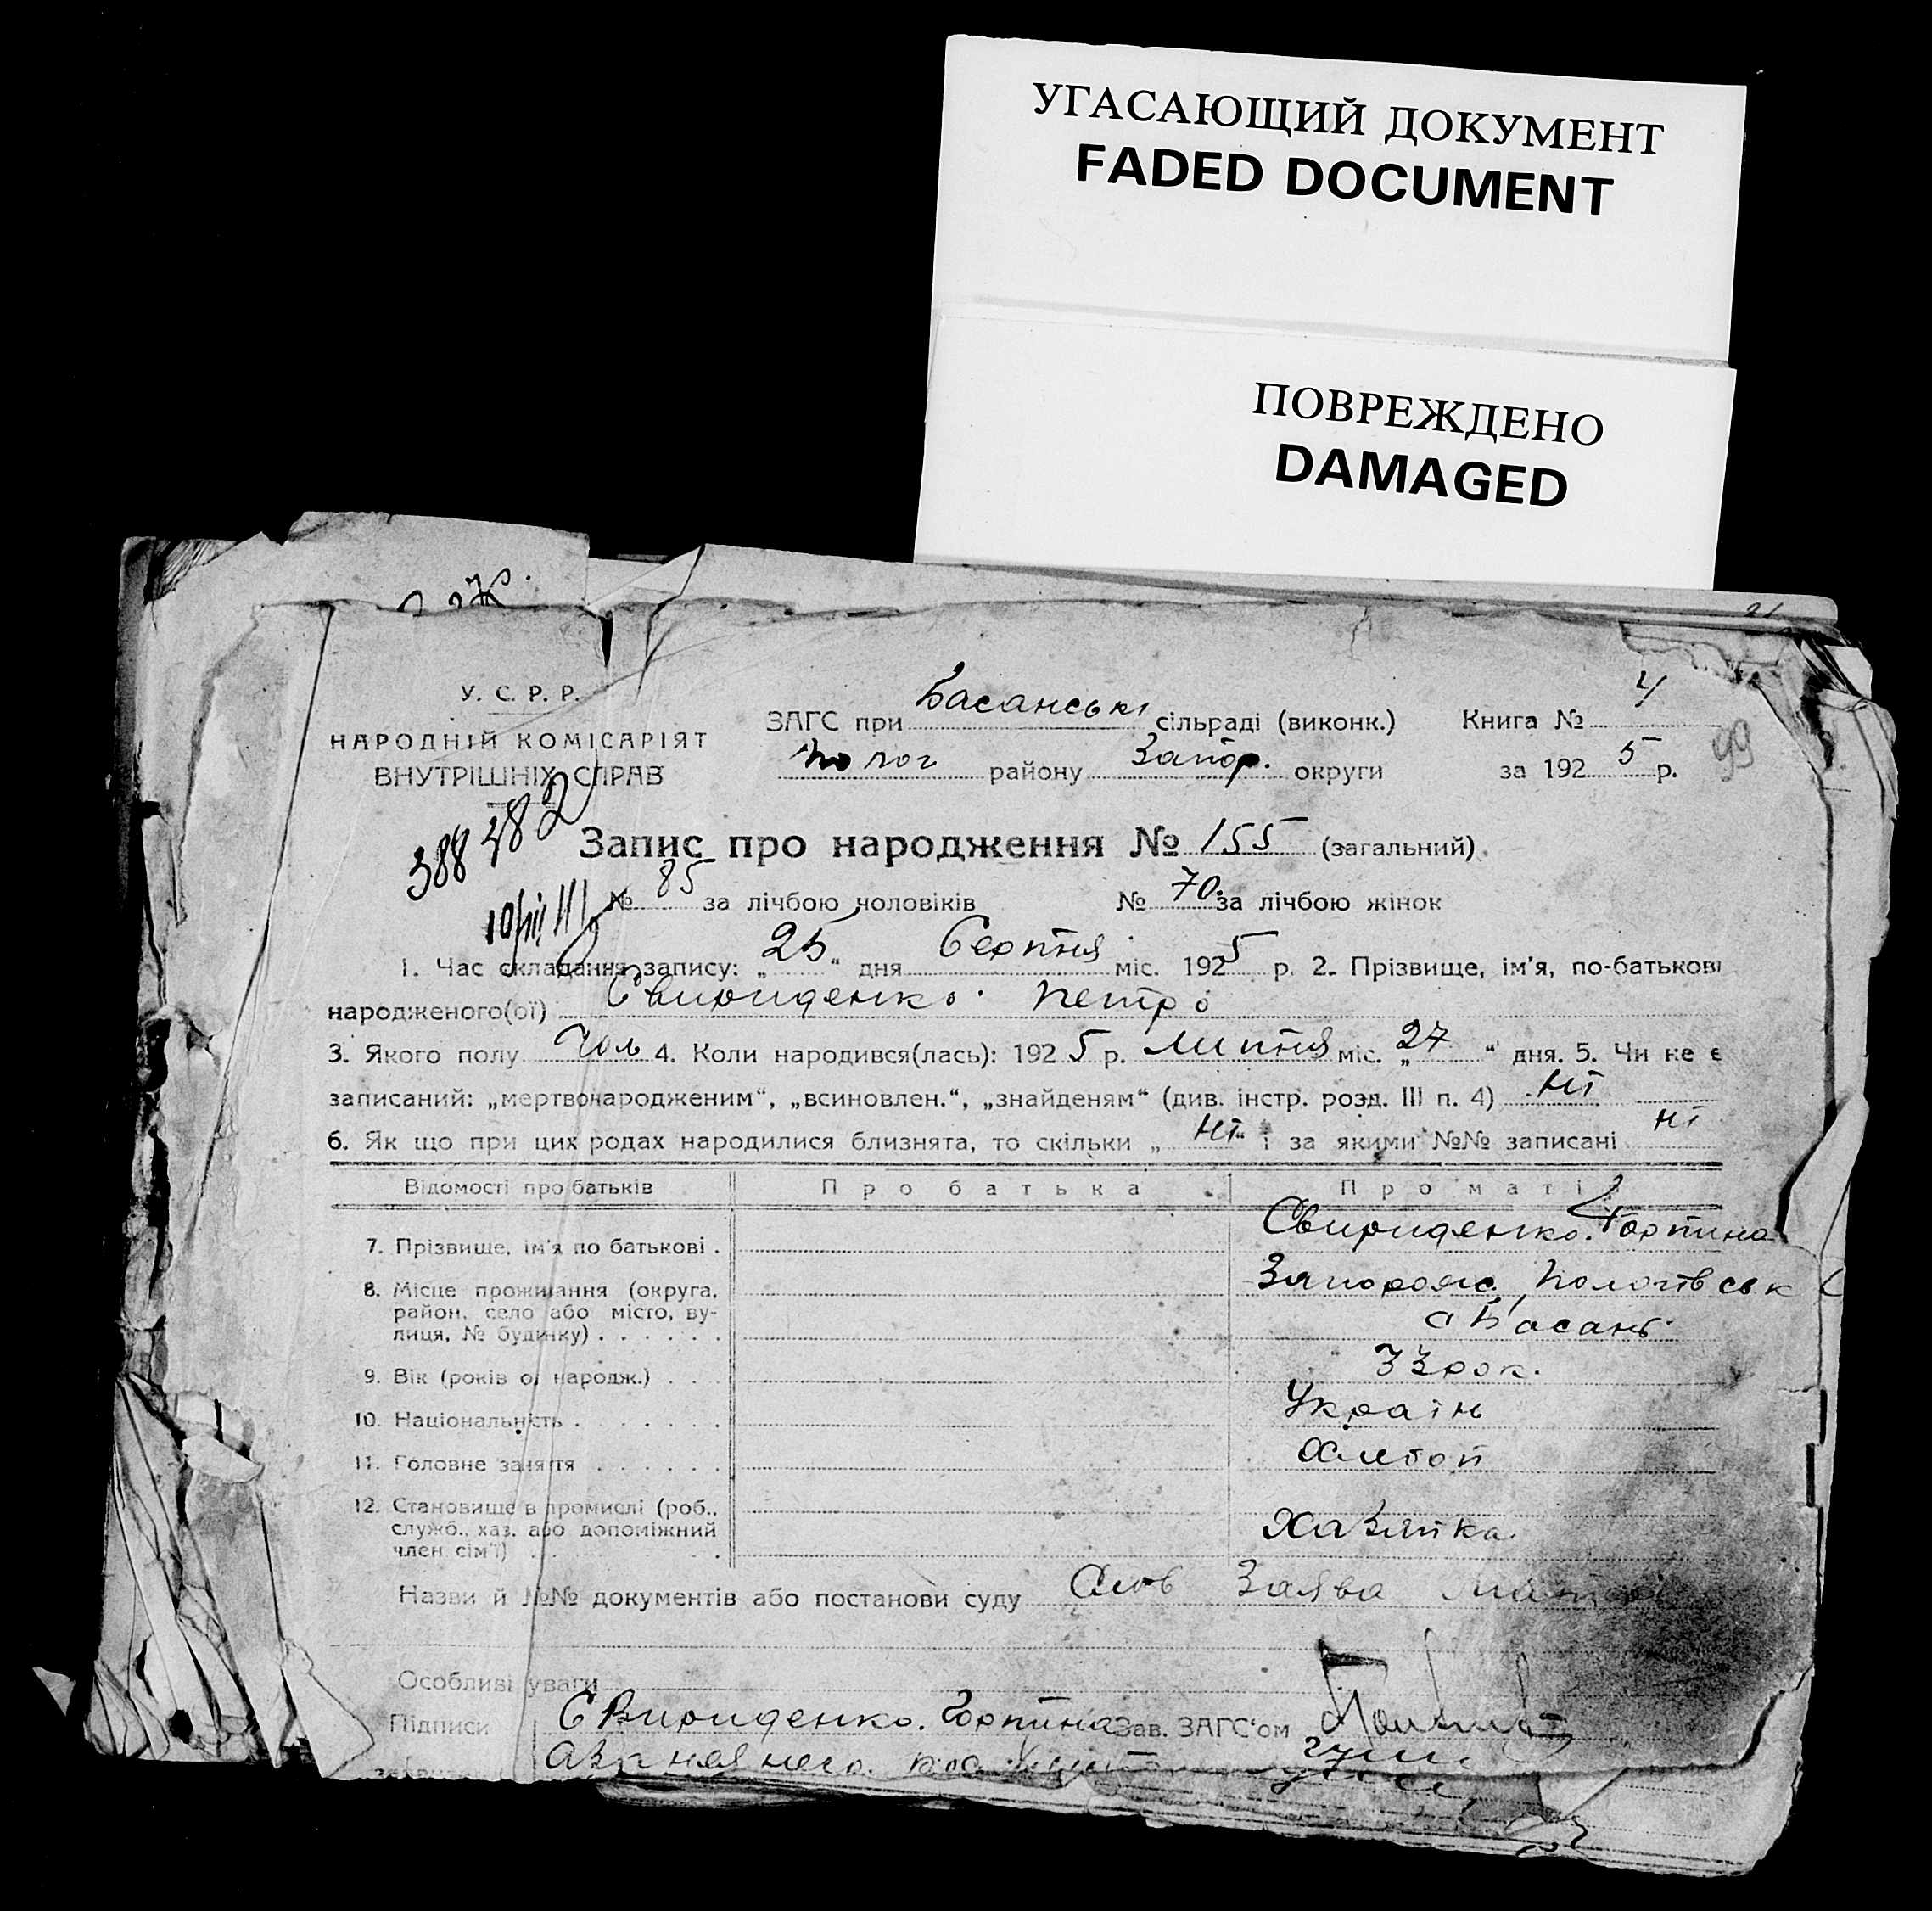 УГАСАЮЩИЙ ДОКУМЕНТ
FADED DOCUMENT
ПОВРЕЖДЕНО
DAMAGED
У. С. Р. Р.
НАРОДНІЙ КОМІСАРІЯТ
ВНУТРІШНІХ СПРАВ
388482
ЗАГС при Басанські сільраді (виконк.) Книга № 4
Полог району Запор. округи за 1925 р.
99
Запис про народження № 155 (загальний)
№ 85 за лічбою чоловіків № 70. за лічбою жінок
1. Час складання запису: „25“ дня Серпня міс. 1925 р. 2. Прізвище, ім'я, по-батькові
народженого(ої) Свириденко Петро
3. Якого полу Чол 4. Коли народився(лась): 1925 р. Липня міс. „27“ дня. 5. Чи не є
записаний: „мертвонародженим“, „всиновлен.“, „знайденям“ (див. інстр. розд. III п. 4) Ні
6. Як що при цих родах народилися близнята, то скільки „Ні“ і за якими №№ записані Ні
Відомості про батьків Про батька Про матір
7. Прізвище, ім'я по батькові . Свириденко. Горпина
8. Місце проживання (округа, Запорож, Пологівськ
район, село або місто, ву-
лиця, № будинку) . . . . . . с Басань
9. Вік (років од народж.) . . . 33 рок.
10. Національність . . . . Україн
11. Головне заняття . . . . . . Хлебоп
12. Становище в промислі (роб.,
служб., хаз. або допоміжний Хазяйка.
член сім'ї) . .
Назви й №№ документів або постанови суду Слов Заява
Особливі уваги
Підписи Свириденко. Горпина Зав. ЗАГС'ом